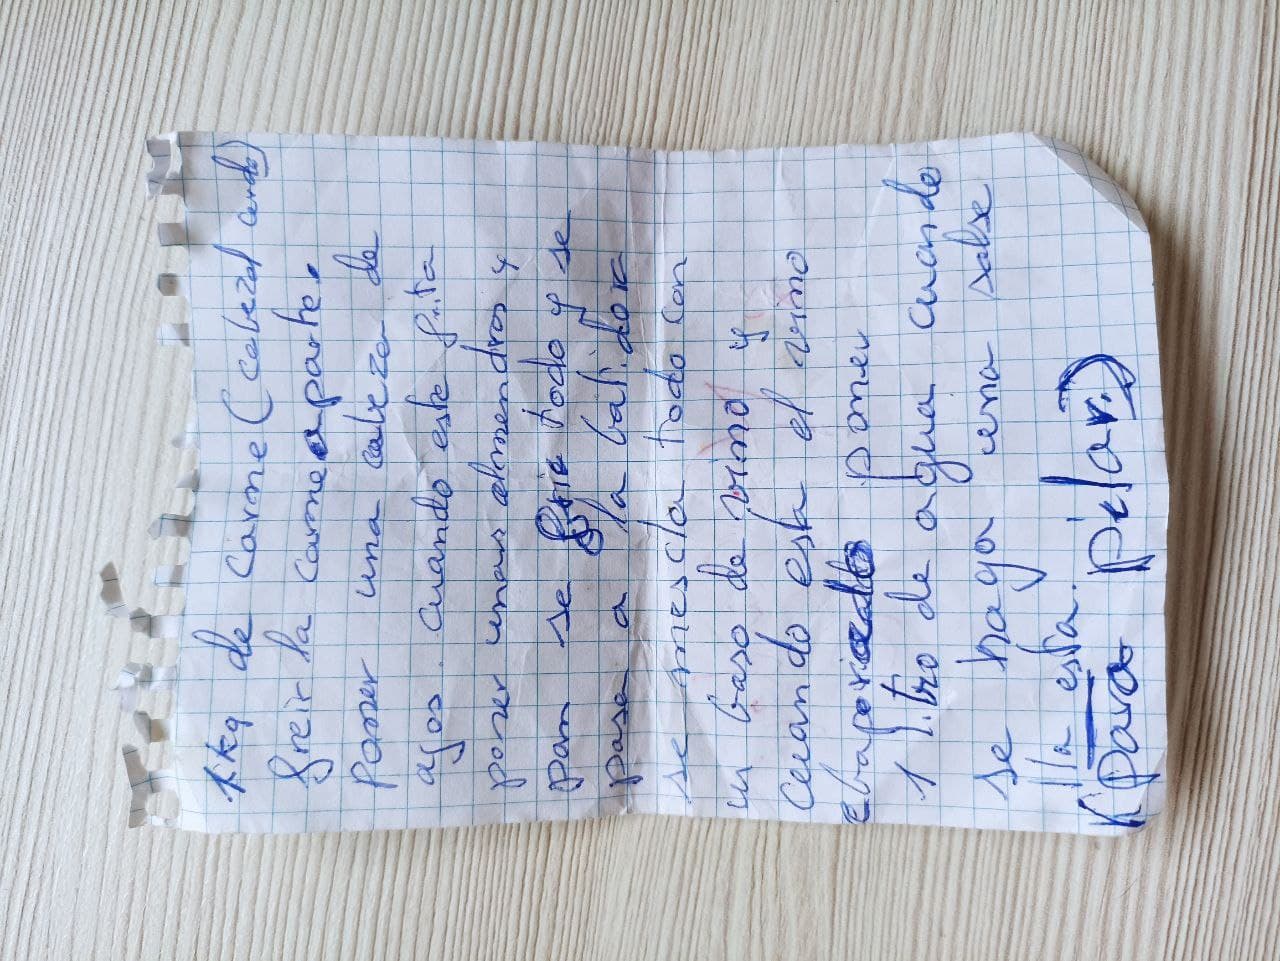 1 kg de carne (cabezal cerdo)
freir la carne aparte.
Poner una cabeza de
ajos. cuando este frita
poner unas almendras y
pan se fria todo y se
pasa a la batidora
se mescla todo con
un baso de vino y
Cuando esta el vino
ebaporado poner
1 litro de agua cuando
se haga una salse
lla esta.
(para pilar.)